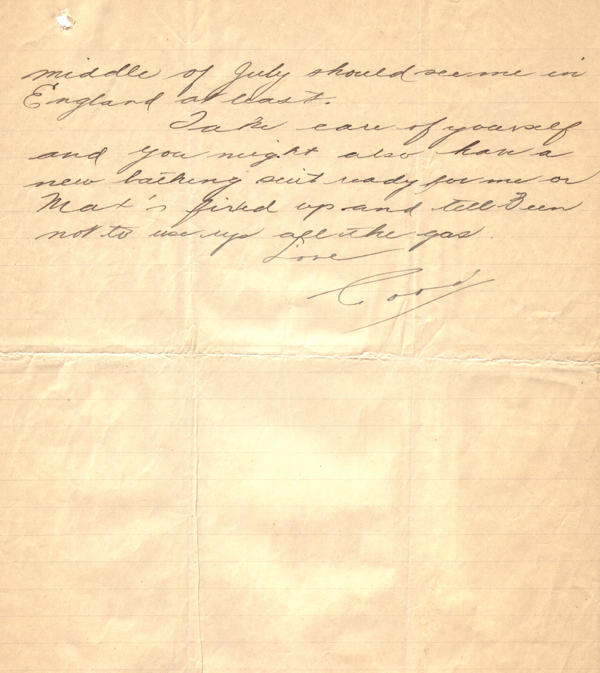 middle of July should see me in
England at least.
Take care of yourself
and you might also have a
new bathing suit ready for me or
Max's fixed up and tell
not to use up all the gas.
Love